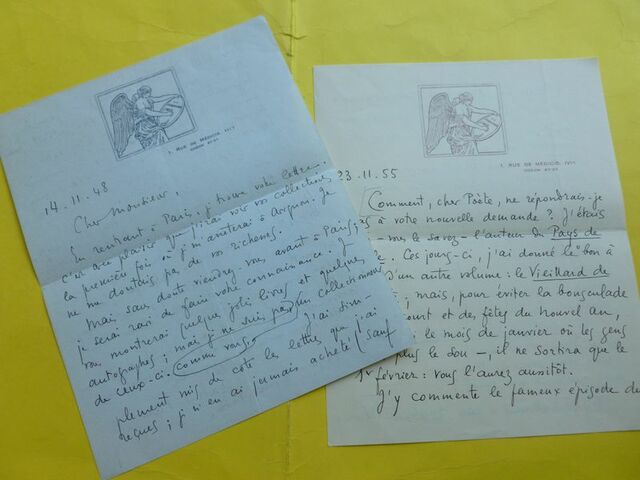 7, RUE DE MÉDICIS, VIe
14.11.48
Cher Monsieur,
En rentrant à Paris, je trouve votre lettre.
C'est avec plaisir que j'irai voir vos collections
la première fois où j'arrêterai à Avignon. Je
ne me doutais pas de vos richesses.
Mais sans doute viendrez-vous, avant, à Paris;
je serai ravi de faire votre connaissance. Je
vous montrerai quelques jolis livres et quelques
autographes; mais je ne suis pas un collectionneur
de ceux-ci. comme vous. J'ai sim-
plement mis de côté les lettres que j'ai
reçues; je n'en ai jamais acheté (sauf
7, RUE DE MÉDICIS, VIe
23.11.55
Comment, cher Poète, ne répondrais-je
pas à votre nouvelle demande? J'étais
vous le savez - l'auteur du Pays de
Ces jours-ci, j'ai donné le bon à
d'un autre volume: le Vieillard de
, mais, pour éviter la bousculade
et de, fêtes du nouvel an,
le mois de janvier où les gens
plus le sou -, il ne sortira que le
1er février: vous l'aurez aussitôt.
J'y commente le fameux épisode de